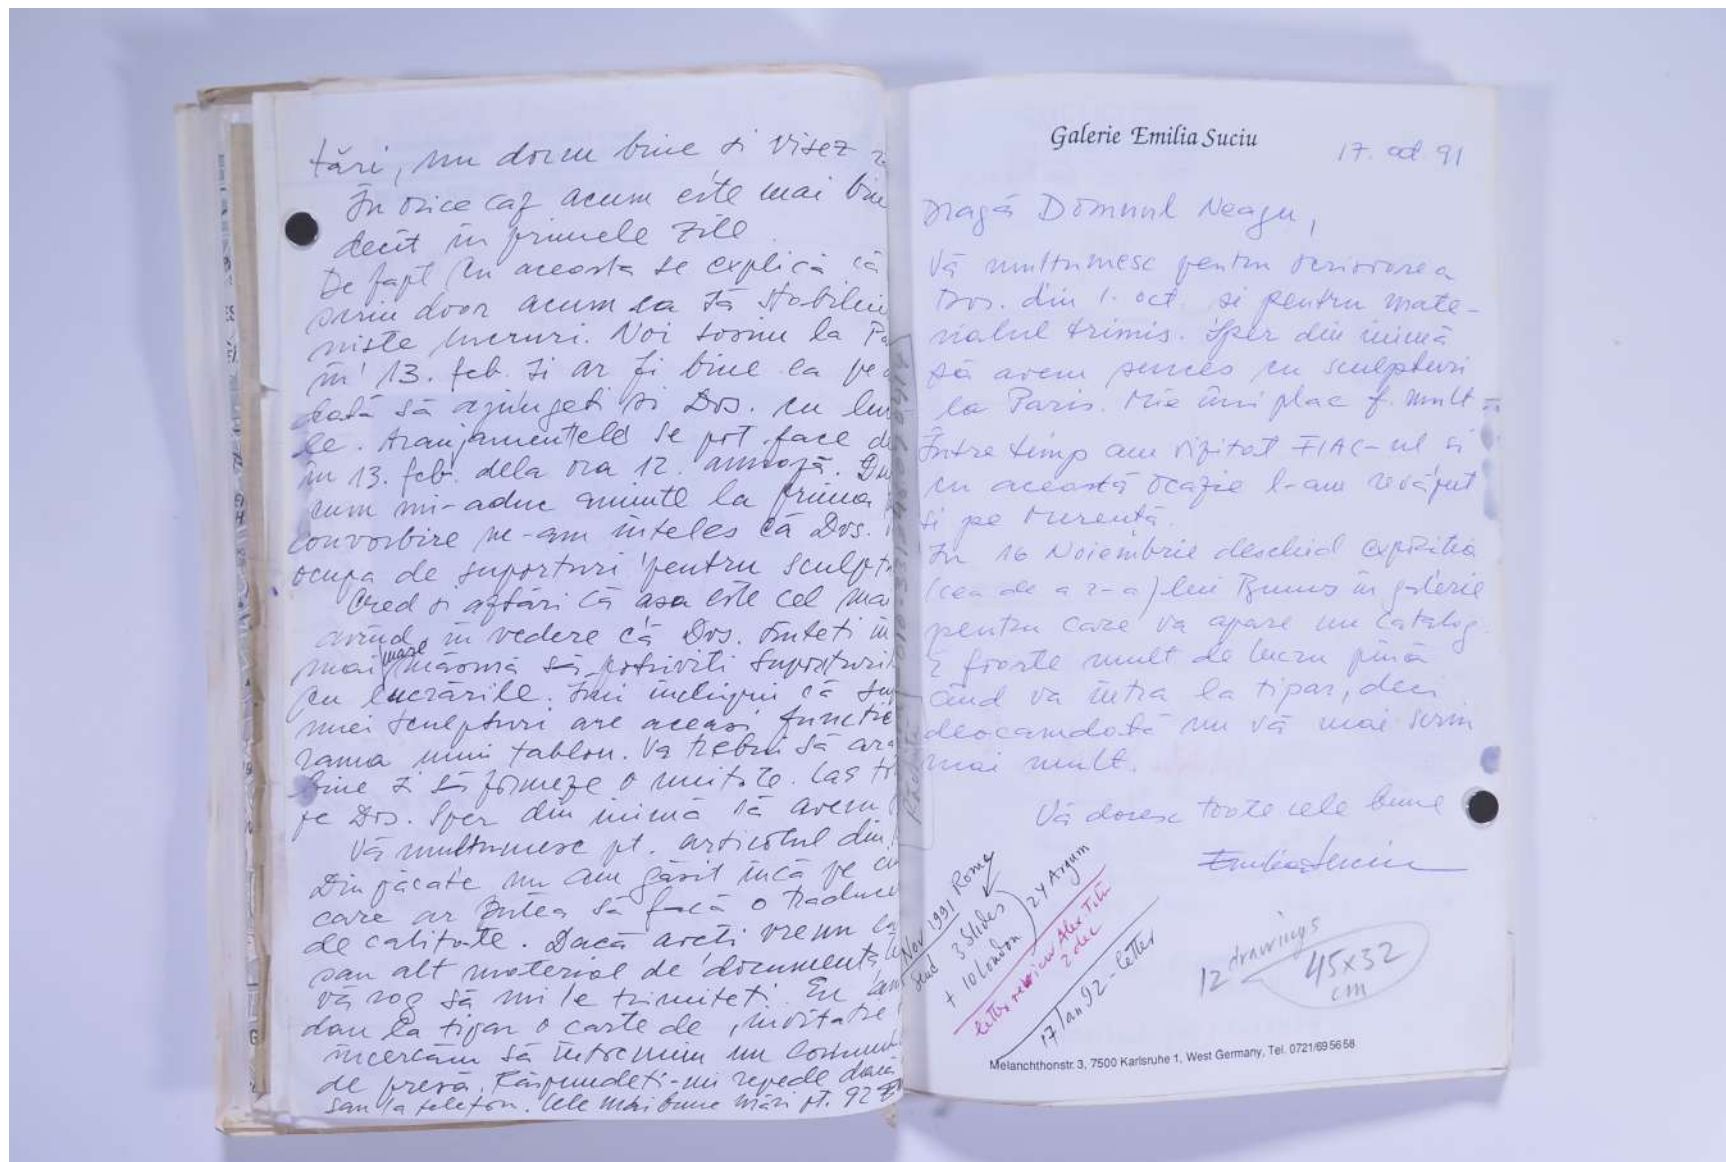 tări, nu dorm bine si visez
În orice caz acum este mai bine
decît în primele zile.
De fapt cu aceasta se explică că
scriu doar acum ca să stabilim
niste lucruri. Noi sosim la Pa
în 13. feb. si ar fi bine ca pe
dată să ajungeti si Dvs. cu lu
le. Aranjamentele se pot face de
în 13. feb. dela ora 12. amiază. Du
cum mi-aduc aminte la prima
convorbire ne-am înteles că Dvs.
ocupa de suporturi pentru sculpt
Cred si astări că asa este cel ma
avînd în vedere că Dvs. sînteti în
mai mare măsură să potriviti suporturi
cu lucrările. Îmi închipui că su
unei sculpturi are aceasi functie
rama unui tablou. Va trebui să ara
bine si să formeze o unitate. Las to
pe Dvs. Sper din inimă să avem
Vă multumesc pt. articolul din
Din păcate nu am găsit încă pe ci
care ar putea să facă o traduce
de calitate. Dacă aveti vreun ca
sau alt material de documenta
vă rog să mi le trimiteti. Eu
dau la tipar o carte de invitatie
încercăm să întocmim un comuni
de presă. Răspundeti-mi repede dacă
sau la telefon. Cele mai bune urări pt. 92
Galerie Emilia Suciu
17. oct 91
Dragă Domnul Neagu,
Vă multumesc pentru scrisoarea
Dvs. din 1. oct. si pentru mate-
rialul trimis. Sper din inimă
să avem succes cu sculpturi
la Paris. Mie îmi plac f. mult
Între timp am vizitat FIAC-ul si
cu această ocazie l-am revăzut
si pe
În 16 Noiembrie deschid expozitia
(cea de a 2-a) lui Brunus în galerie
pentru care va apare un catalog.
E foarte mult de lucru pînă
cînd va intra la tipar, deci
deocamdată nu vă mai scriu
mai mult.
Vă doresc toate cele bune
Emilia Suciu
Nov 1991 Rome
Send 3 Slides
+ 10 London) 24 Argum
letter review Alex. Titu
2 dec
17 Jan 92 - letter
12 drawings
45x32
cm
Melanchthonstr. 3, 7500 Karlsruhe 1, West Germany, Tel. 0721/695658